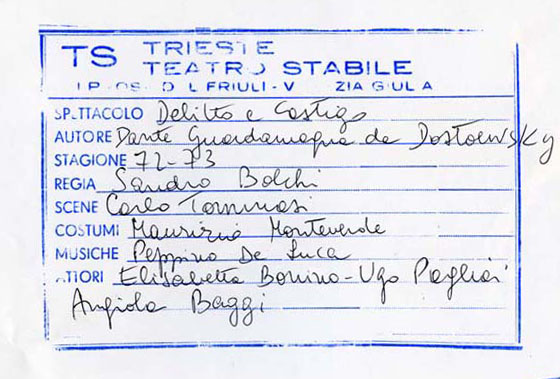 TS TRIESTE
TEATRO STABILE
SPETTACOLO Delitto e Castigo
AUTORE Dante Guardamagna da Dostoewsky
STAGIONE 72-73
REGIA Sandro Bolchi
SCENE Carlo Tommasi
COSTUMI Maurizio Monteverde
MUSICHE Peppino De Luca
ATTORI Elisabetta Bonino - Ugo Pagliai
Angiola Baggi